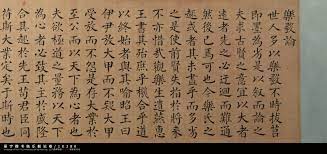 樂毅論
世人多以樂毅不時拔莒
即墨為劣是以叙而論之
夫求古賢之意宜以大者
遠者先之必迂迴而難通
然後已焉可也今樂氏之
趣或者其未盡乎而多劣
之是使前賢失指於將来
不亦惜哉觀樂生遺燕惠
王書其殆庶乎機合乎道
以終始者與其喻昭王曰
伊尹放大甲而不疑大甲
受放而不怨是存大業於
至公而以天下為心者也
夫欲極道之量務以天下
為心者必致其主於盛隆
合其趣於先王苟君臣同
符斯大業定矣于斯時也